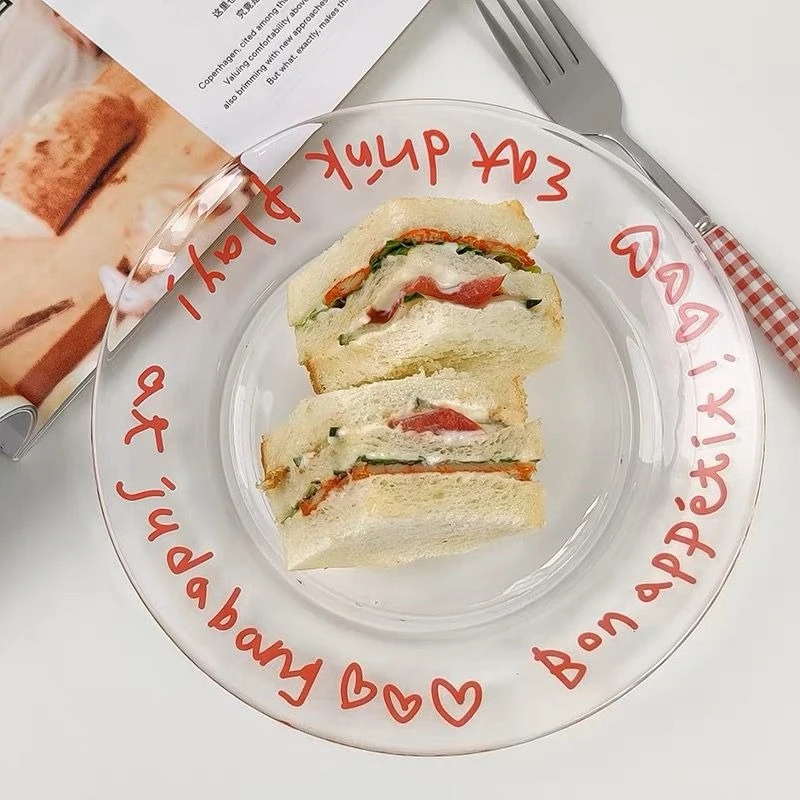 这里也
究竟是
Copenhagen, cited among the
Valuing comfortability above
also brimming with new approaches
But what, exactly, makes th
Eat drink play!
at judabang
Bon appétit!